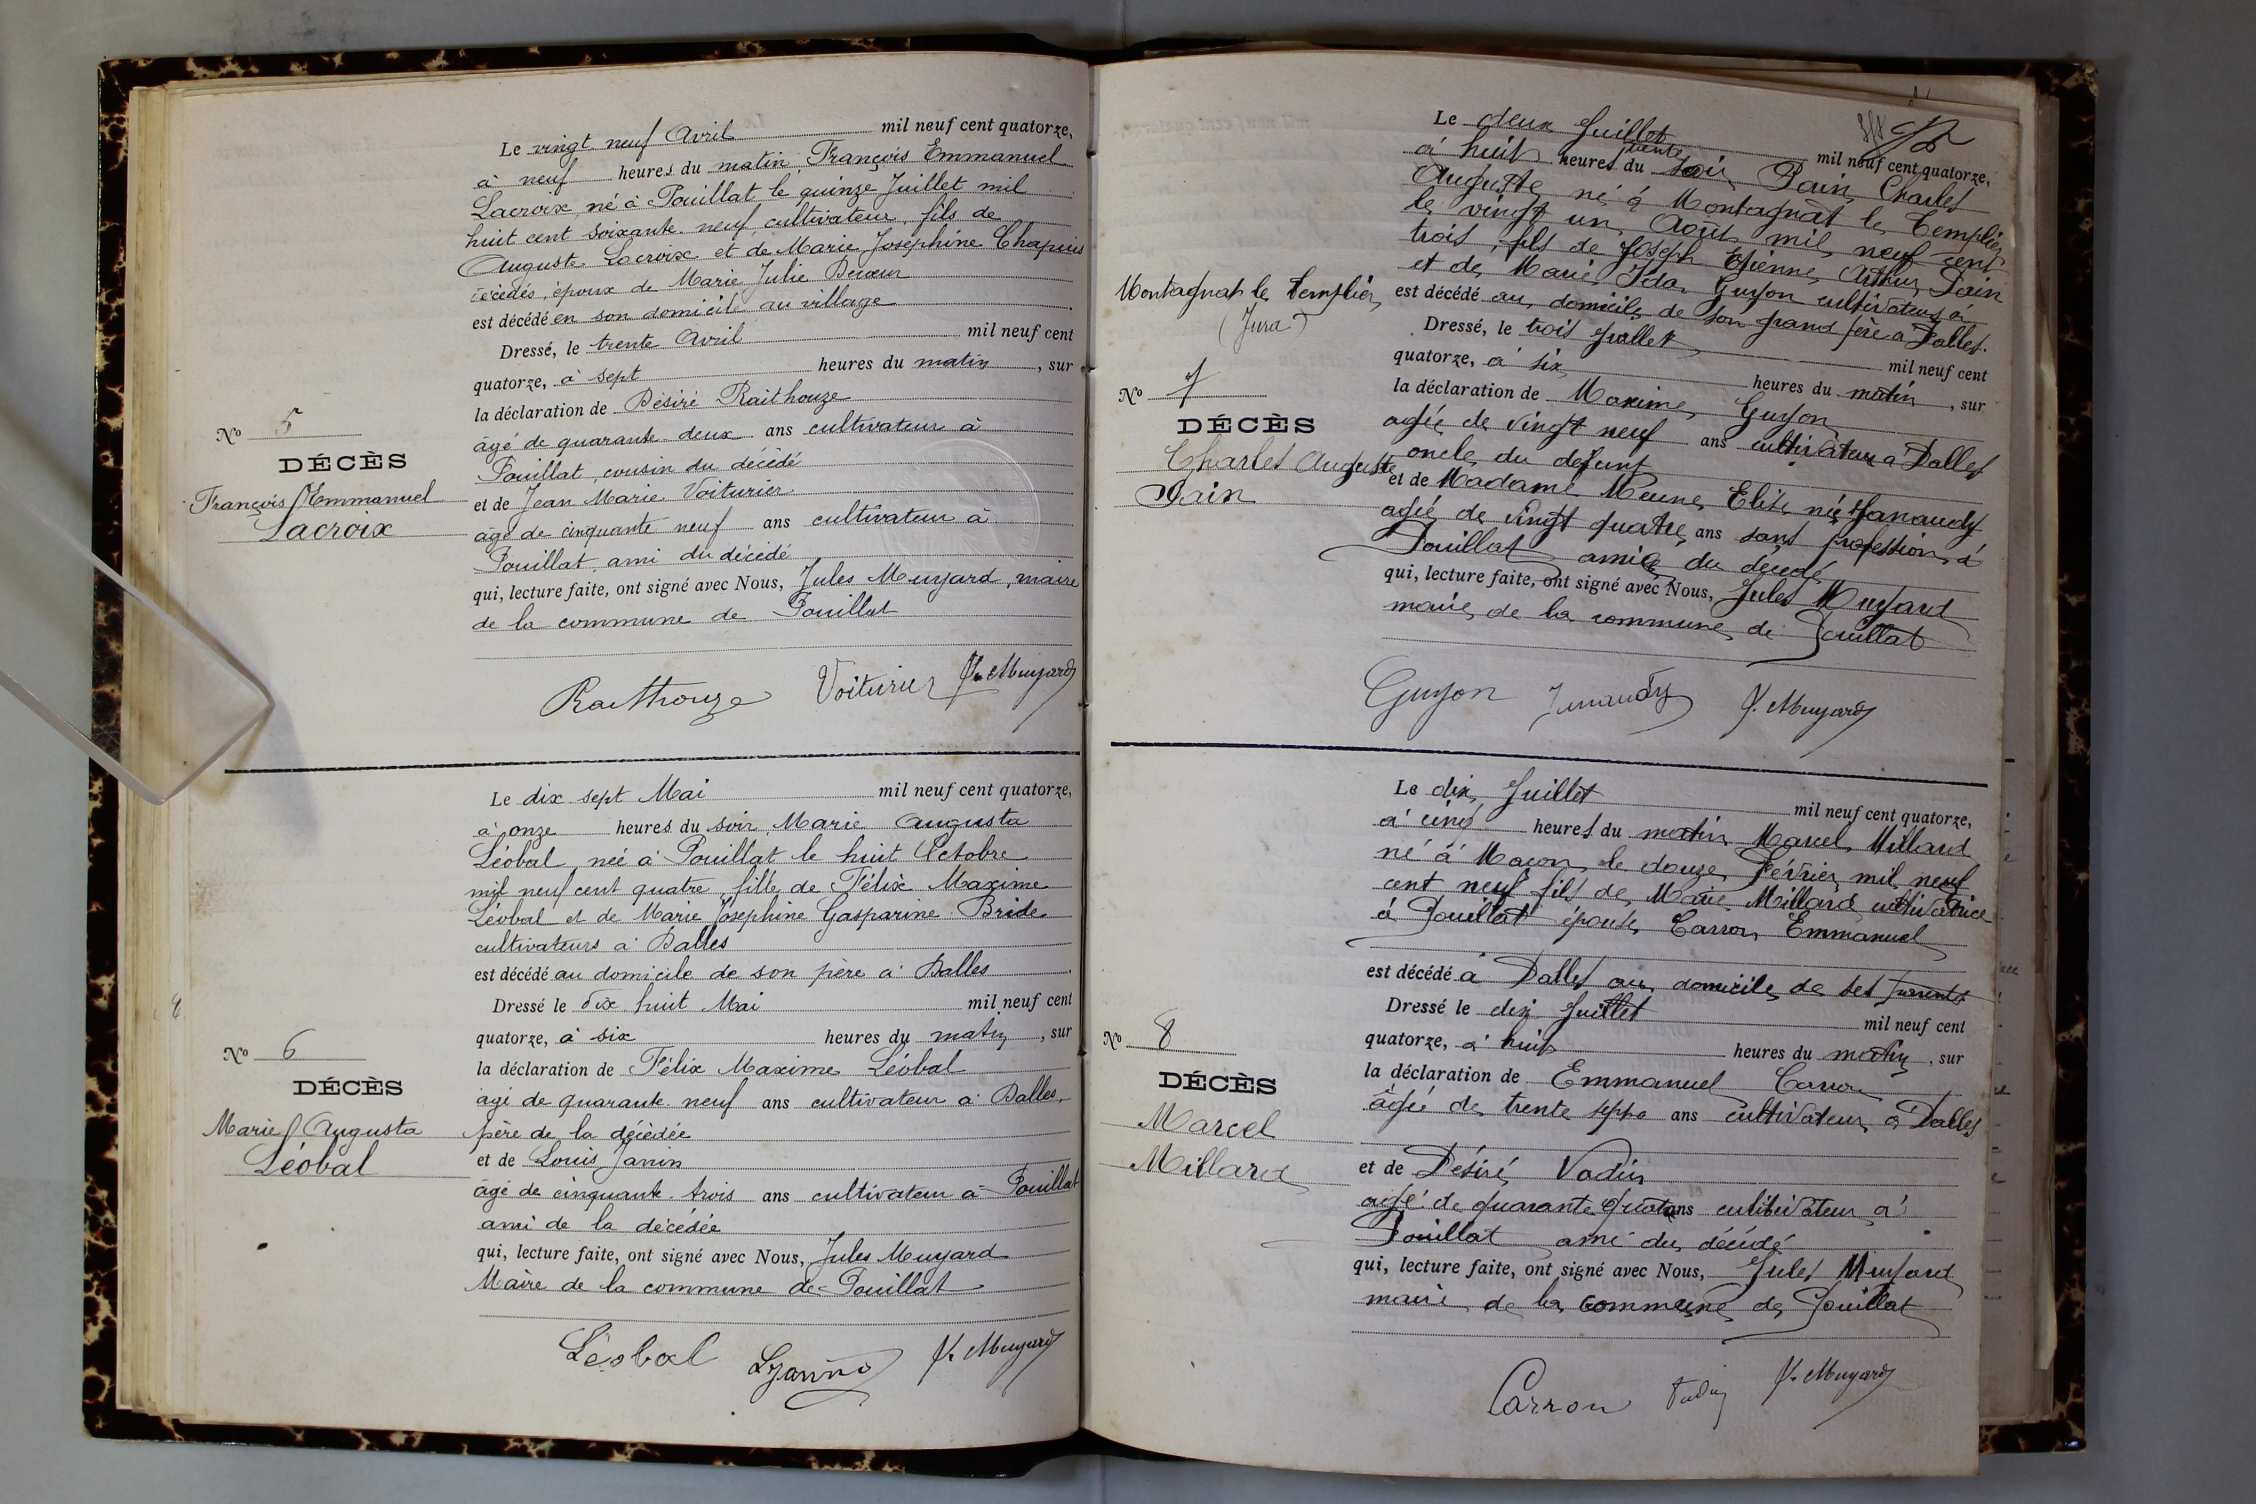 Le vingt neuf Avril mil neuf cent quatorze,
à neuf heures du matin, François Emmanuel
Lacroix, né à Pouillat le quinze Juillet mil
huit cent soixante neuf, cultivateur, fils de
Auguste Lacroix et de Marie Joséphine Chapuis
décédés, époux de Marie Julie
est décédé en son domicile au village
Dressé, le trente Avril mil neuf cent
quatorze, à sept heures du matin, sur
la déclaration de Désiré Raithouze
âgé de quarante deux ans cultivateur à
Pouillat, cousin du décédé
et de Jean Marie Voiturier
âgé de cinquante neuf ans cultivateur à
Pouillat, ami du décédé
qui, lecture faite, ont signé avec Nous, Jules Muyard, maire
de la commune de Pouillat
Raithouze Voiturier J. Muyard
No 5
DÉCÈS
François Emmanuel
Lacroix
Le dix sept Mai mil neuf cent quatorze,
à onze heures du soir, Marie Augusta
Léobal, née à Pouillat le huit Octobre
mil neuf cent quatre, fille de Félix Maxime
Léobal et de Marie Joséphine Gasparine Bride
cultivateurs à Dalles
est décédé au domicile de son père à Dalles
Dressé le dix huit Mai mil neuf cent
quatorze, à six heures du matin, sur
la déclaration de Félix Maxime Léobal
âgé de quarante neuf ans cultivateur à Dalles,
père de la décédée
et de Louis Janin
âgé de cinquante trois ans cultivateur à Pouillat
ami de la décédée
qui, lecture faite, ont signé avec Nous, Jules Muyard
Maire de la commune de Pouillat
Léobal J. Muyard
No 6
DÉCÈS
Marie Augusta
Léobal
Le deux Juillet mil neuf cent quatorze,
à huit heures trente du soir Pain Charles
Auguste né à Montagnat le Templier
le vingt un Août mil neuf cent
trois, fils de Joseph Etienne Arthur Pain
et de Marie Ida Guyon cultivateurs à
Montagnat le Templier
(Jura)
est décédé au domicile de son grand père à Dalles.
Dressé, le trois Juillet mil neuf cent
quatorze, à six heures du matin, sur
la déclaration de Maxime Guyon
agée de vingt neuf ans cultivateur à Dalles
oncle du defunt
et de Madame Meune Elise née
agée de vingt quatre ans sans profession à
Pouillat amie du décédé
qui, lecture faite, ont signé avec Nous, Jules Muyard
maire de la commune de Pouillat
Guyon J. Muyard
No 7
DÉCÈS
Charles Auguste
Pain
Le dix Juillet mil neuf cent quatorze,
à cinq heures du matin Marcel Millard
né à Macon le douze Février mil neuf
cent neuf fils de Marie Millard cultivatrice
à Pouillat épouse Carron Emmanuel
est décédé à Dalles au domicile de ses parents
Dressé le dix Juillet mil neuf cent
quatorze, à huit heures du matin, sur
la déclaration de Emmanuel Carron
âgée de trente sept ans cultivateur à Dalles
et de Désiré Vodin
agé de quarante quatre ans cultivateur à
Pouillat ami du décédé
qui, lecture faite, ont signé avec Nous, Jules Muyard
maire de la commune de Pouillat
Carron J. Muyard
No 8
DÉCÈS
Marcel
Millard